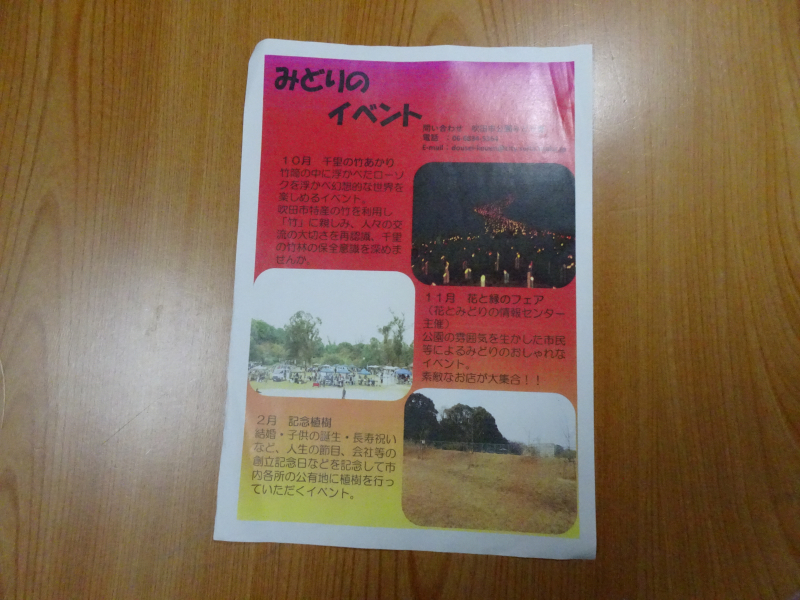 みどりの
イベント
問い合わせ
電話
E-mail
10月 千里の竹あかり
竹筒の中に浮かべたローソ
クを浮かべ幻想的な世界を
楽しめるイベント。
吹田市特産の竹を利用し
「竹」に親しみ、人々の交
流の大切さを再認識、千里
の竹林の保全意識を深めま
せんか。
11月 花と緑のフェア
(花とみどりの情報センター
主催)
公園の雰囲気を生かした市民
等によるみどりのおしゃれな
イベント。
素敵なお店が大集合!!
2月 記念植樹
結婚・子供の誕生・長寿祝い
など、人生の節目、会社等の
創立記念日などを記念して市
内各所の公有地に植樹を行っ
ていただくイベント。